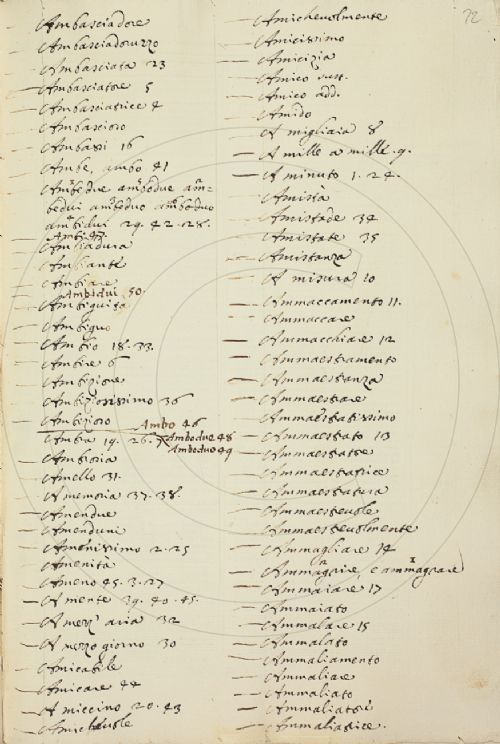 72
Ambasciadore
Ambasciadoruzzo
Ambasciata 23
Ambasciatore 5
Ambasciatrice 4
Ambascioso
Ambassi 16
Ambe, ambo 41
Ambedue ambodue am=
bedui ambeduo amboduo
ambidui 29. 42. 28.
Ambi 47
Ambiadura
Ambiante
Ambiare
Ambidui 50
Ambiguità
Ambiguo
Ambio 18. 33.
Ambire 6
Ambizione
Ambiziosissimo 36
Ambizioso
Ambo 46
Ambra 19. 26. Ambodue 48
Amboduo 49
Ambrosia
Amello 31.
A memoria 37. 38.
Amendue
Amenduni
Amenissimo 2. 25
Amenità
Ameno 45. 3. 27
A mente 39. 40. 45.
A mezz' aria 32
A mezzo giorno 30
Amicabile
Amicare 44
A miccino 20. 43
Amichevole
Amichevolmente
Amicissimo
Amicizia
Amico sust.
Amico add.
Amido
A migliaia 8
A mille a mille. 9.
A minuto 1. 24.
Amistà
Amistade 34
Amistate 35
Amistanza
A misura 10
Ammaccamento 11.
Ammaccare
Ammacchiare 12
Ammaestramento
Ammaestranza
Ammaestrare
Ammaestratissimo
Ammaestrato 13
Ammaestratore
Ammaestratrice
Ammaestratura
Ammaestrevole
Ammaestrevolmente
Ammagliare 14
Ammagrire, e ammagrare
Ammaiare 17
Ammaiato
Ammalare 15
Ammalato
Ammaliamento
Ammaliare
Ammaliato
Ammaliatore
Ammaliatrice.